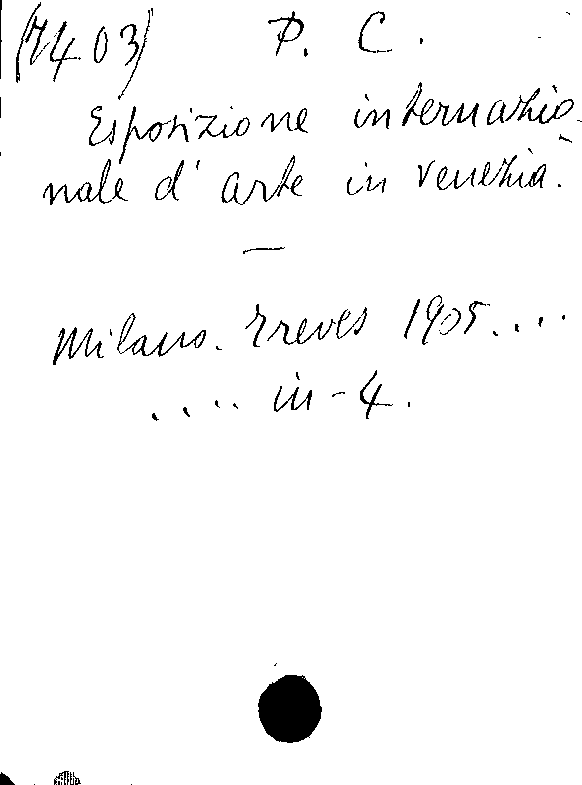 (7403) P. C.
Esposizione internazio-
nale d' arte in venezia.
—
Milano. Treves 1905....
.... in-4.